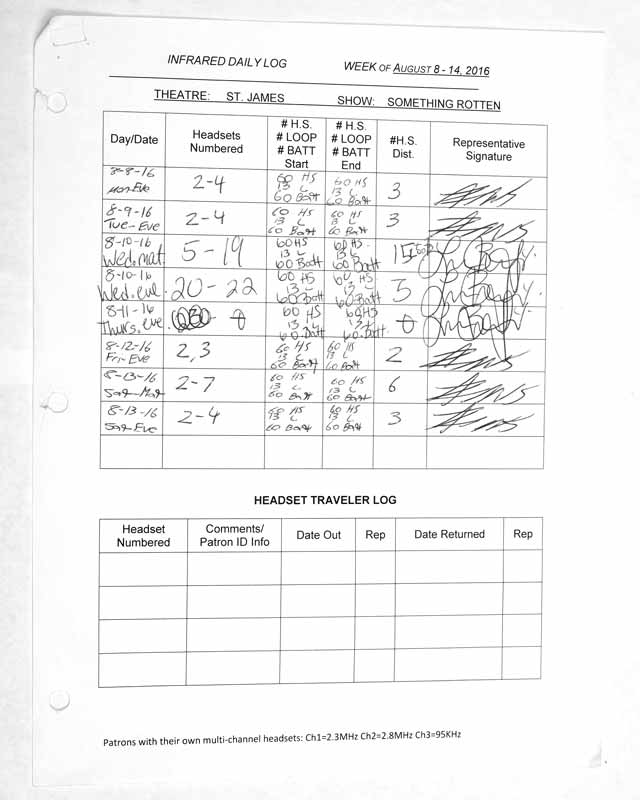 INFRARED DAILY LOG WEEK OF AUGUST 8 - 14, 2016
THEATRE: ST. JAMES SHOW: SOMETHING ROTTEN
Day/Date Headsets Numbered # H.S. # LOOP # BATT Start # H.S. # LOOP # BATT End #H.S. Dist. Representative Signature
8-8-16 Mon-Eve 2-4 60 HS 13 L 60 Batt 60 HS 13 L 60 Batt 3
8-9-16 Tue-Eve 2-4 60 HS 13 L 60 Batt 60 HS 13 L 60 Batt 3
8-10-16 Wed. mat 5-19 60HS 13 L 60 Batt 60 HS 13 L 60 Batt 15
8-10-16 Wed. eve. 20-22 60 HS 13 L 60 Batt 60 HS 13 L 60 Batt 3
8-11-16 Thurs. eve 0 60 HS 13 L 60 Batt 60HS 13 L 60 Batt 0
8-12-16 Fri-Eve 2,3 60 HS 13 L 60 Batt 60 HS 13 L 60 Batt 2
8-13-16 Sat-Mat 2-7 60 HS 13 L 60 Batt 60 HS 13 L 60 Batt 6
8-13-16 Sat-Eve 2-4 60 HS 13 L 60 Batt 60 HS 13 L 60 Batt 3
HEADSET TRAVELER LOG
Headset Numbered Comments/ Patron ID Info Date Out Rep Date Returned Rep
Patrons with their own multi-channel headsets: Ch1=2.3MHz Ch2=2.8MHz Ch3=95KHz